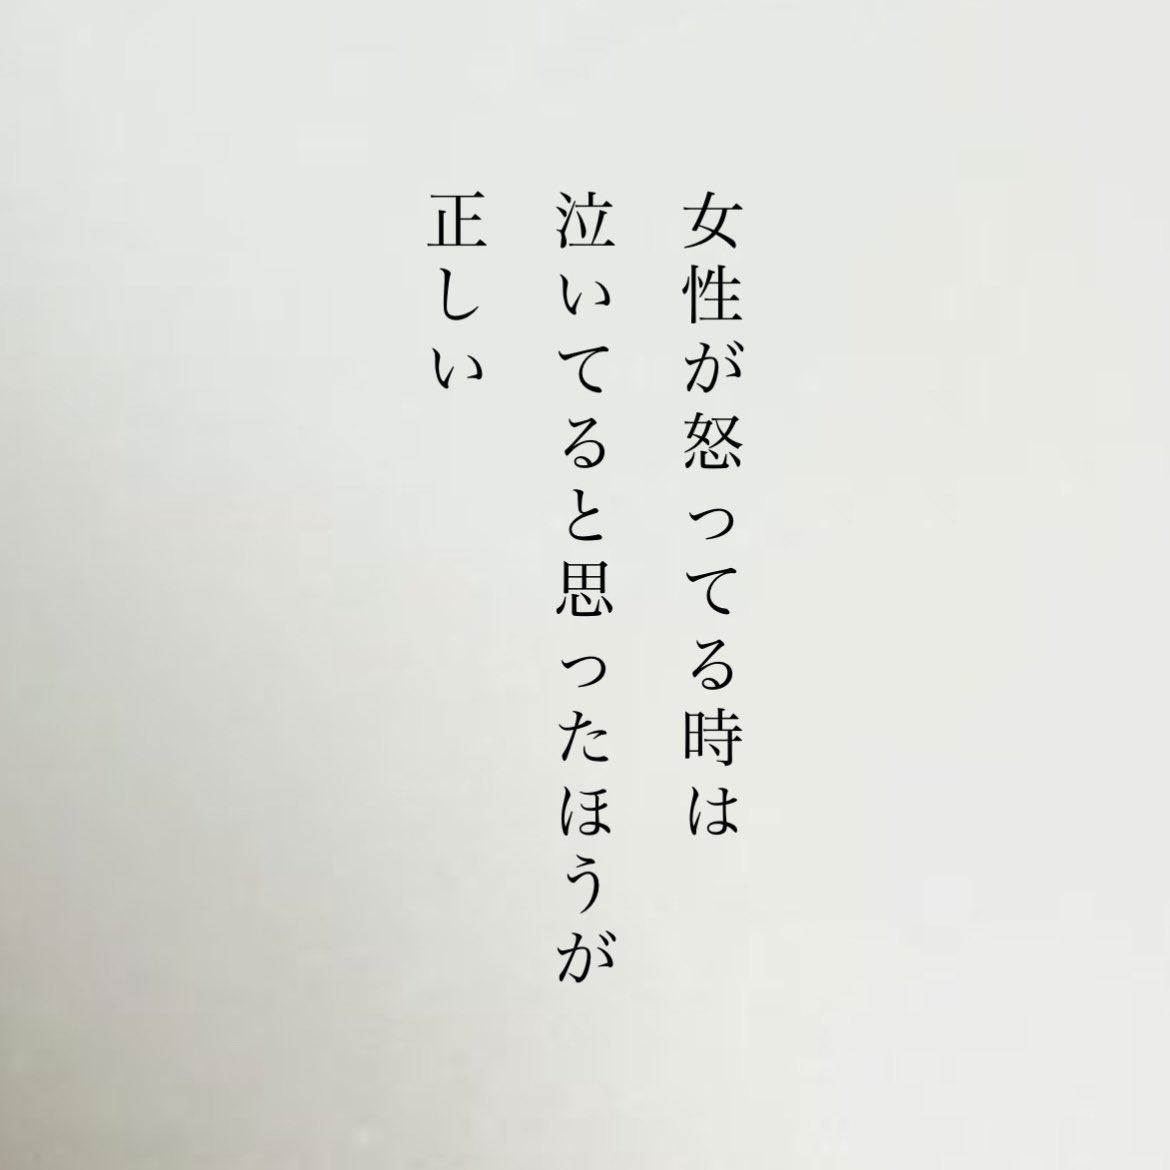 女性が怒ってる時は
泣いてると思ったほうが
正しい